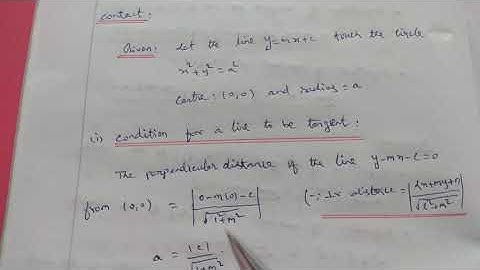 contact:
Given: let the line y=mx+c touch the circle
x²+y²=a²
centre: (0,0) and radius = a
(i) condition for a line to be tangent:
The perpendicular distance of the line y-mx-c=0
from (0,0) = |0-m(0)-c| / √1²+m² (∵ ⊥r distance = |lx+my+n| / √l²+m²
a = |c| / √1+m²